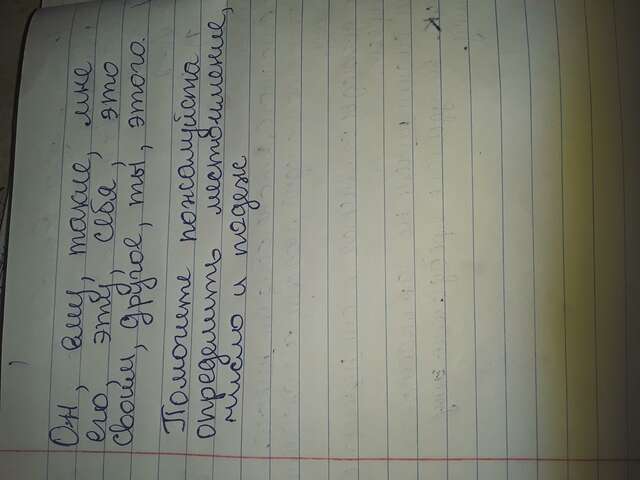 Он, ему, такие, мне
его, эту, себа, это
своим, другое, ты, этого.
Помогите пожалуйста
определить местоимение,
число и подеж